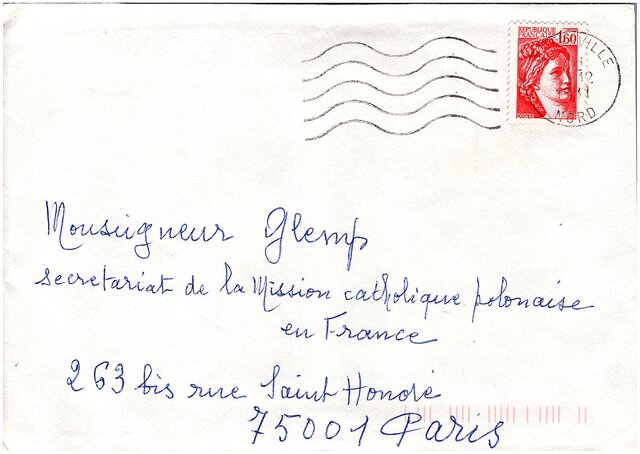 REPUBLIQUE FRANÇAISE 1,60
12
NORD
Monseigneur Glemp
secretariat de la Mission catholique polonaise
en France
263 bis rue Saint Honoré
75001 Paris